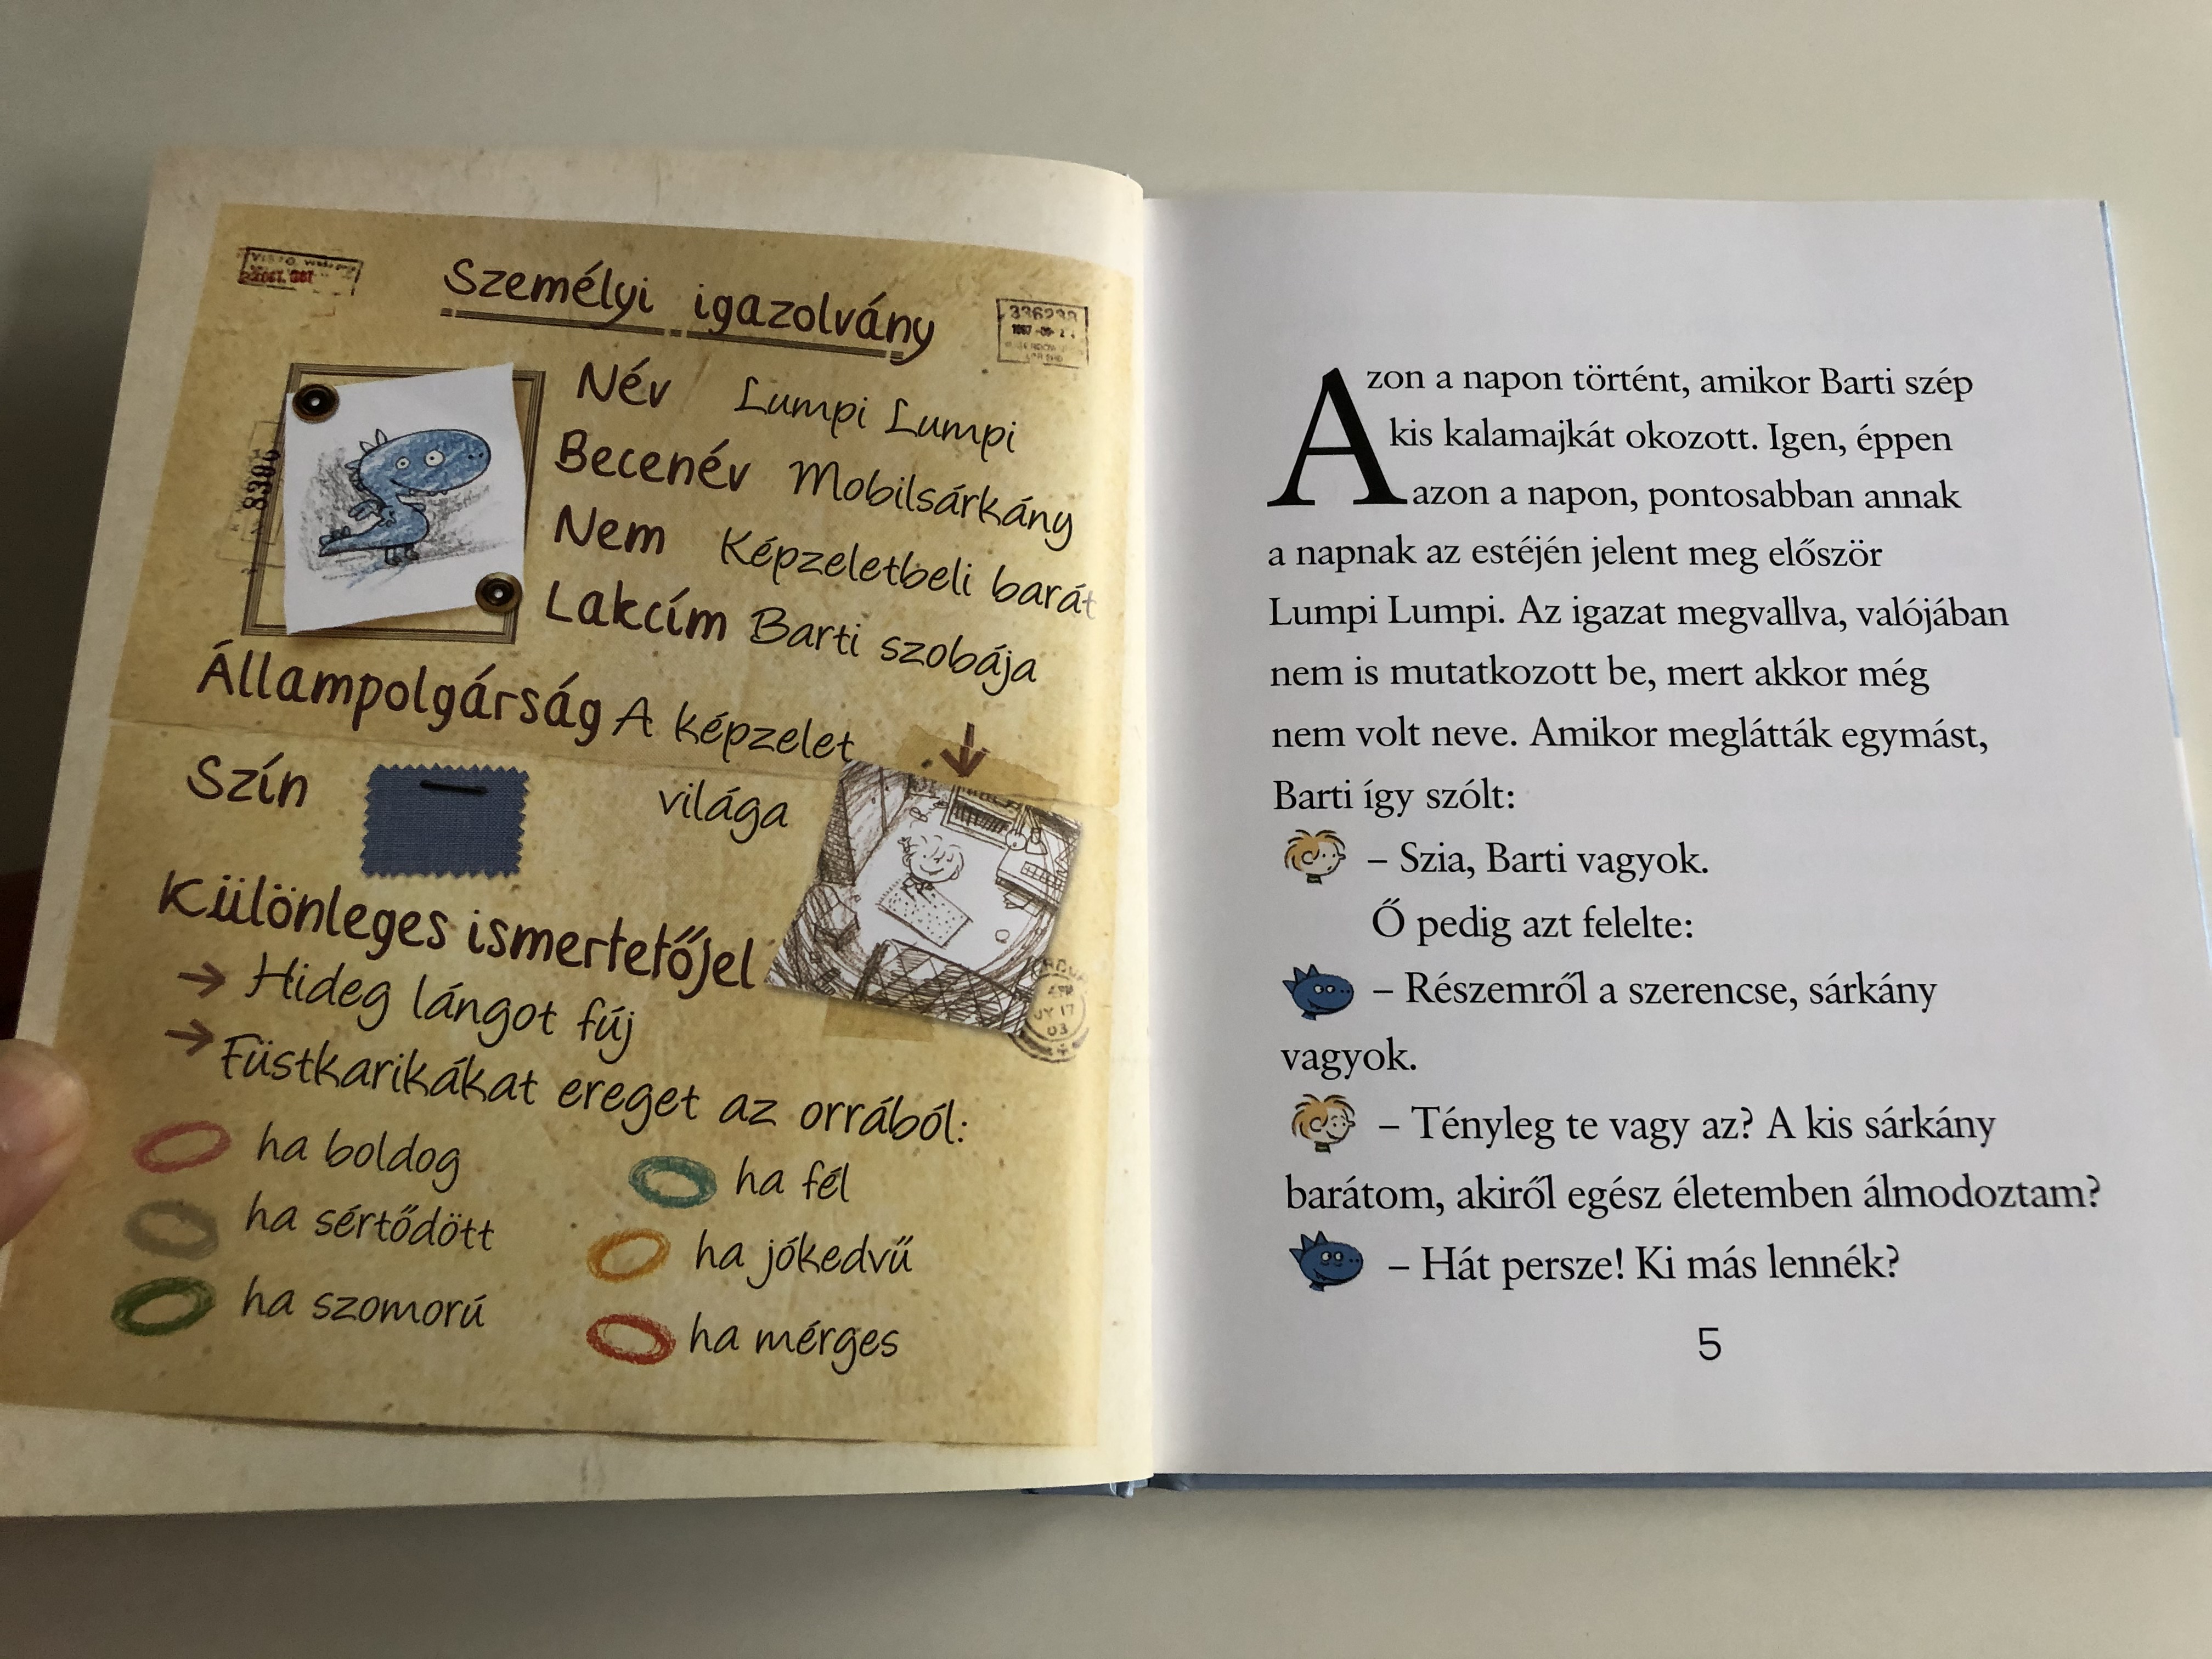 Személyi igazolvány
336238
8306
Név Lumpi Lumpi
Becenév Mobilsárkány
Nem Képzeletbeli barát
Lakcím Barti szobája
Állampolgárság A képzelet
világa
Szín
Különleges ismertetőjel
→ Hideg lángot fúj
→ Füstkarikákat ereget az orrából:
ha boldog
ha sértődött
ha szomorú
ha fél
ha jókedvű
ha mérges
Azon a napon történt, amikor Barti szép
kis kalamajkát okozott. Igen, éppen
azon a napon, pontosabban annak
a napnak az estéjén jelent meg először
Lumpi Lumpi. Az igazat megvallva, valójában
nem is mutatkozott be, mert akkor még
nem volt neve. Amikor meglátták egymást,
Barti így szólt:
– Szia, Barti vagyok.
Ő pedig azt felelte:
– Részemről a szerencse, sárkány
vagyok.
– Tényleg te vagy az? A kis sárkány
barátom, akiről egész életemben álmodoztam?
– Hát persze! Ki más lennék?
5